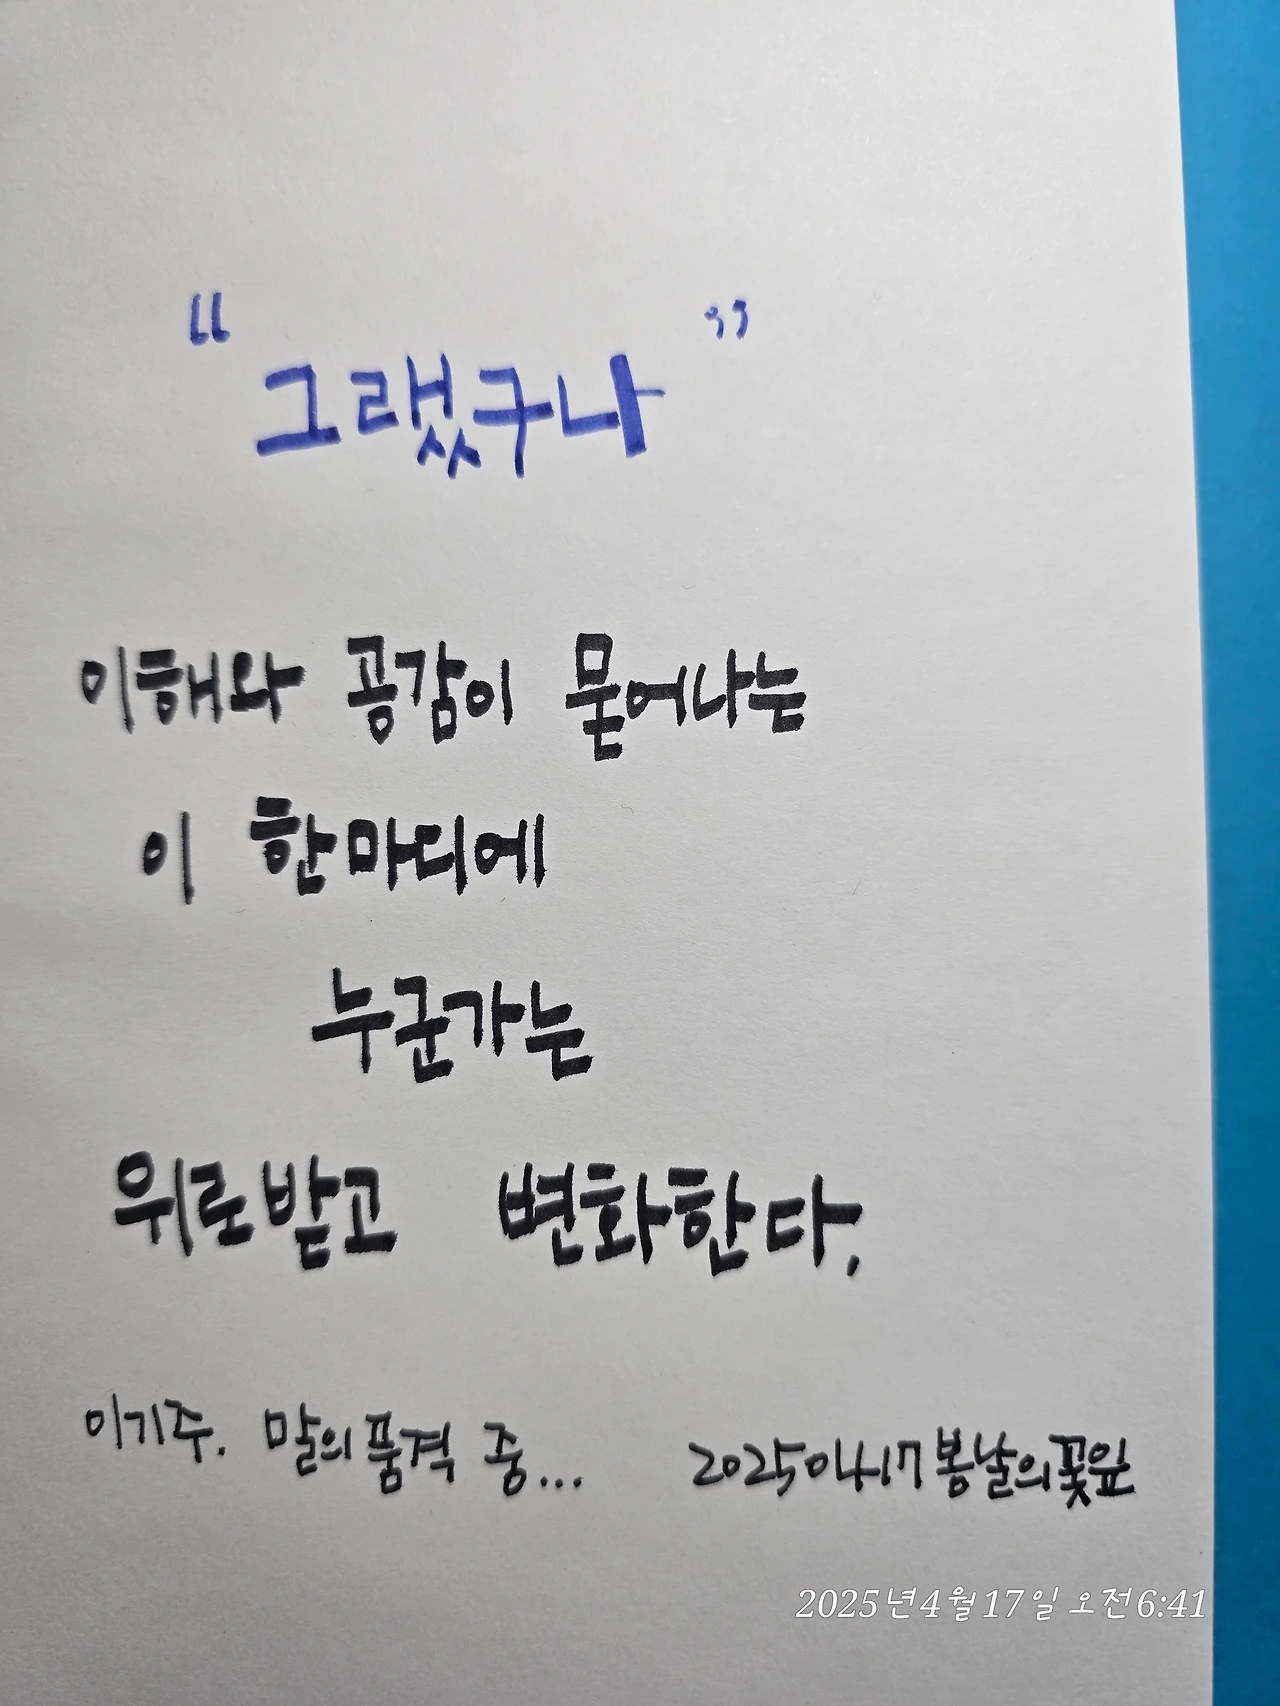 “그랬구나”
이해와 공감이 묻어나는
이 한마디에
누군가는
위로받고 변화한다.
이기주. 말의품격 중... 20250417봄날의꽃잎
2025년4월17일 오전6:41